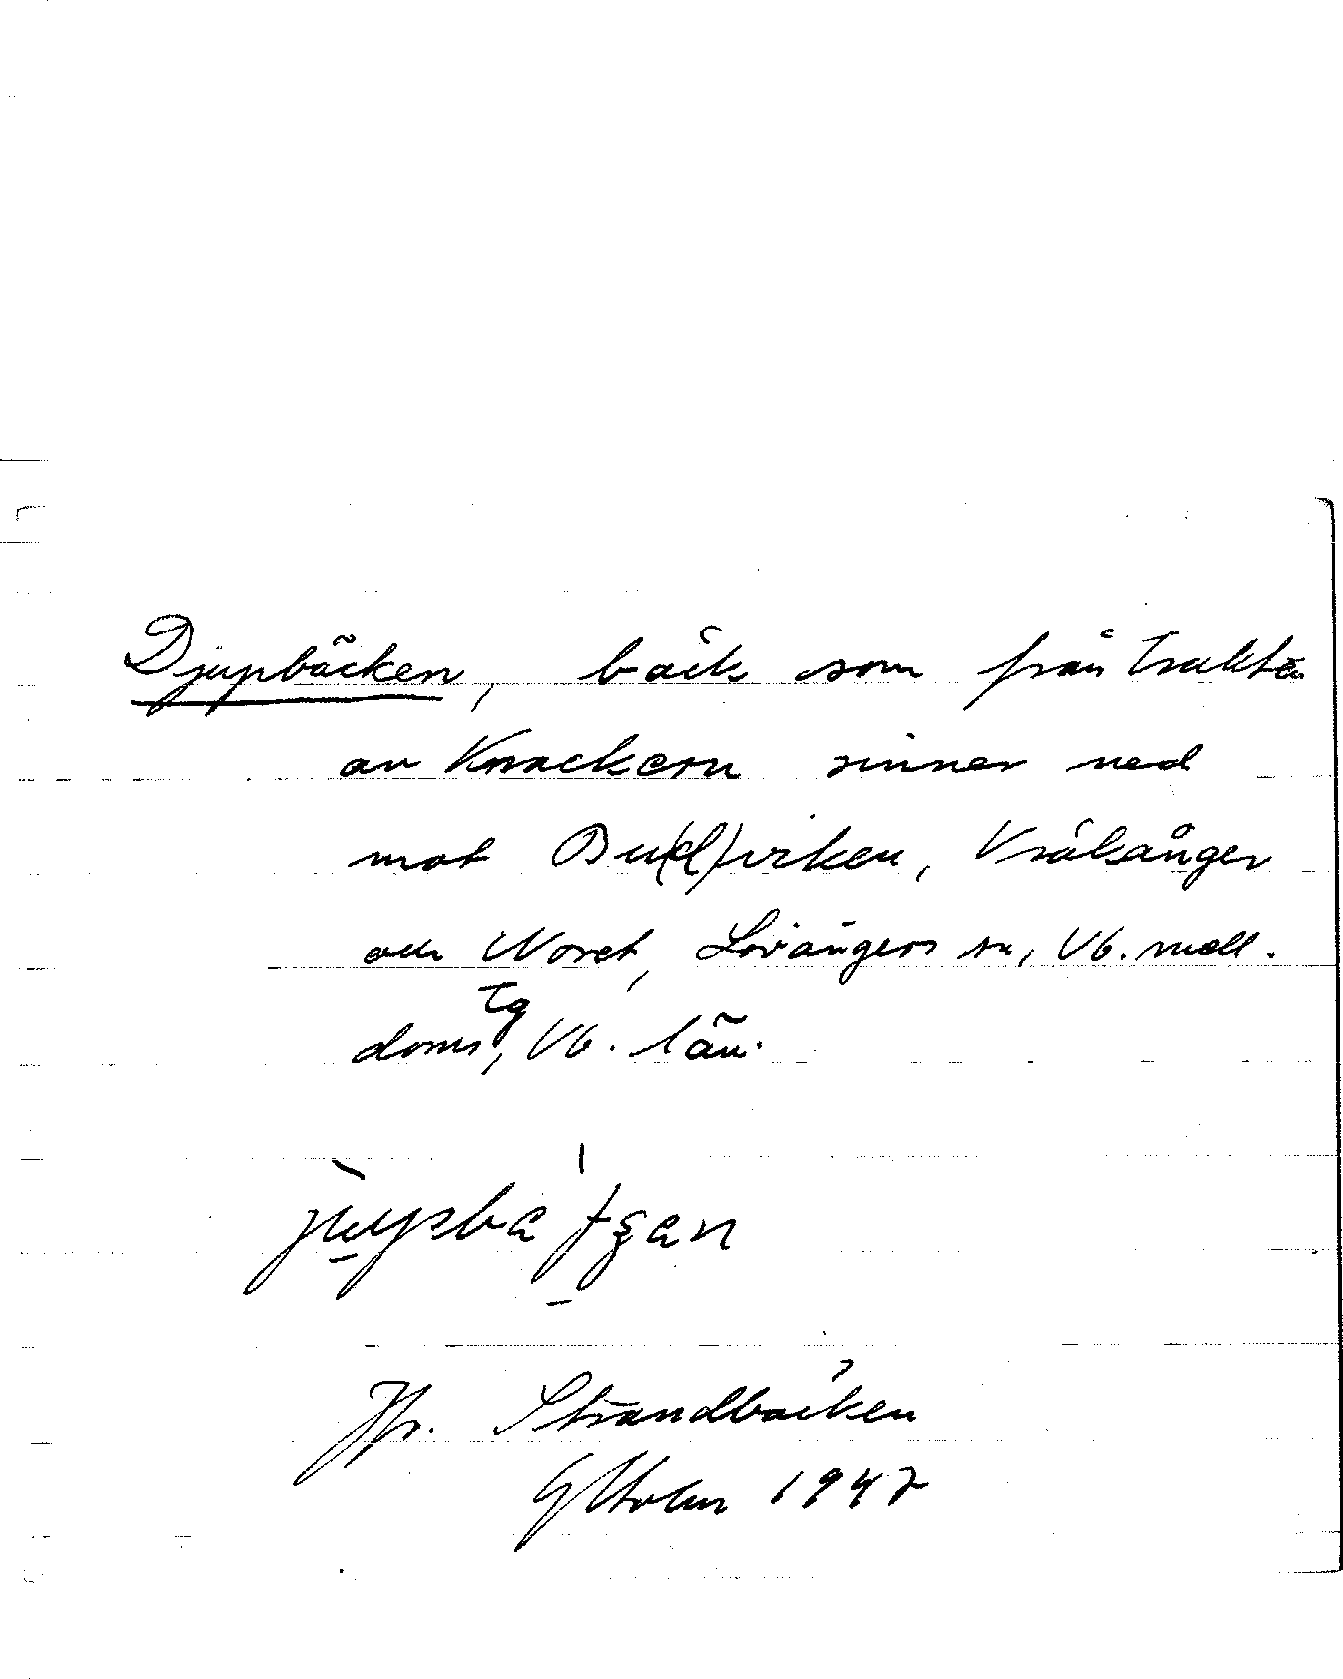 Djupbäcken, bäck som från trakten
av Knackern rinner ned
mot Bu(d)viken, Vrålsånger
och Noret, Lövångers sn, Vb. nedl.
doms tg, Vb. län.
Jfr. Strandbäcken
G Holm 1947